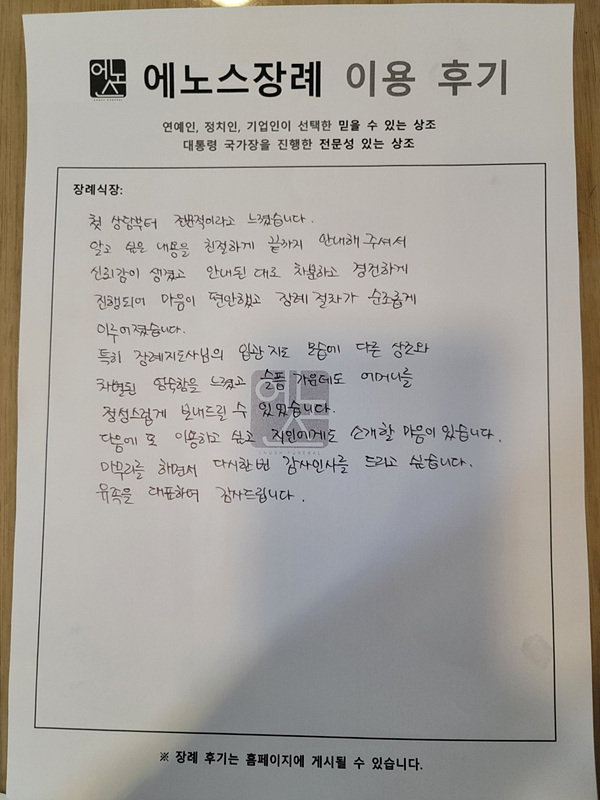 에노스 에노스장례 이용 후기
연예인, 정치인, 기업인이 선택한 믿을 수 있는 상조
대통령 국가장을 진행한 전문성 있는 상조
장례식장:
첫 상담부터 전문적이라고 느꼈습니다.
알고 싶은 내용을 친절하게 끝까지 안내해 주셔서
신뢰감이 생겼고 안내된 대로 차분하고 경건하게
진행되어 마음이 편안했고 장례 절차가 순조롭게
이루어졌습니다.
특히 장례지도사님의 입관 지도 모습에 다른 상조와
차별된 엄숙함을 느꼈고 슬픔 가운데도 어머니를
정성스럽게 보내드릴 수 있었습니다.
다음에 또 이용하고 싶고 지인에게도 소개할 마음이 있습니다.
마무리를 하면서 다시한번 감사인사를 드리고 싶습니다.
유족을 대표하여 감사드립니다.
※ 장례 후기는 홈페이지에 게시될 수 있습니다.